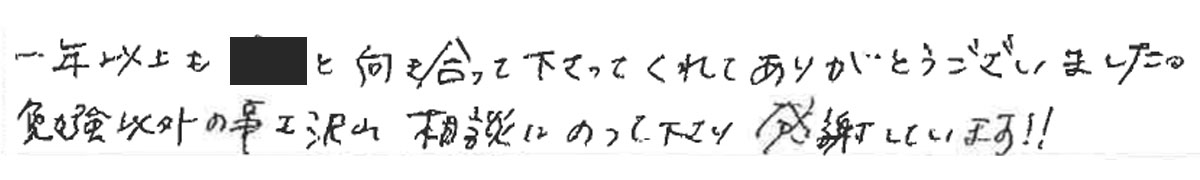 一年以上も と向き合って下さってくれてありがとうございました。
勉強以外の事も沢山 相談にのって下さり 感謝しています!!